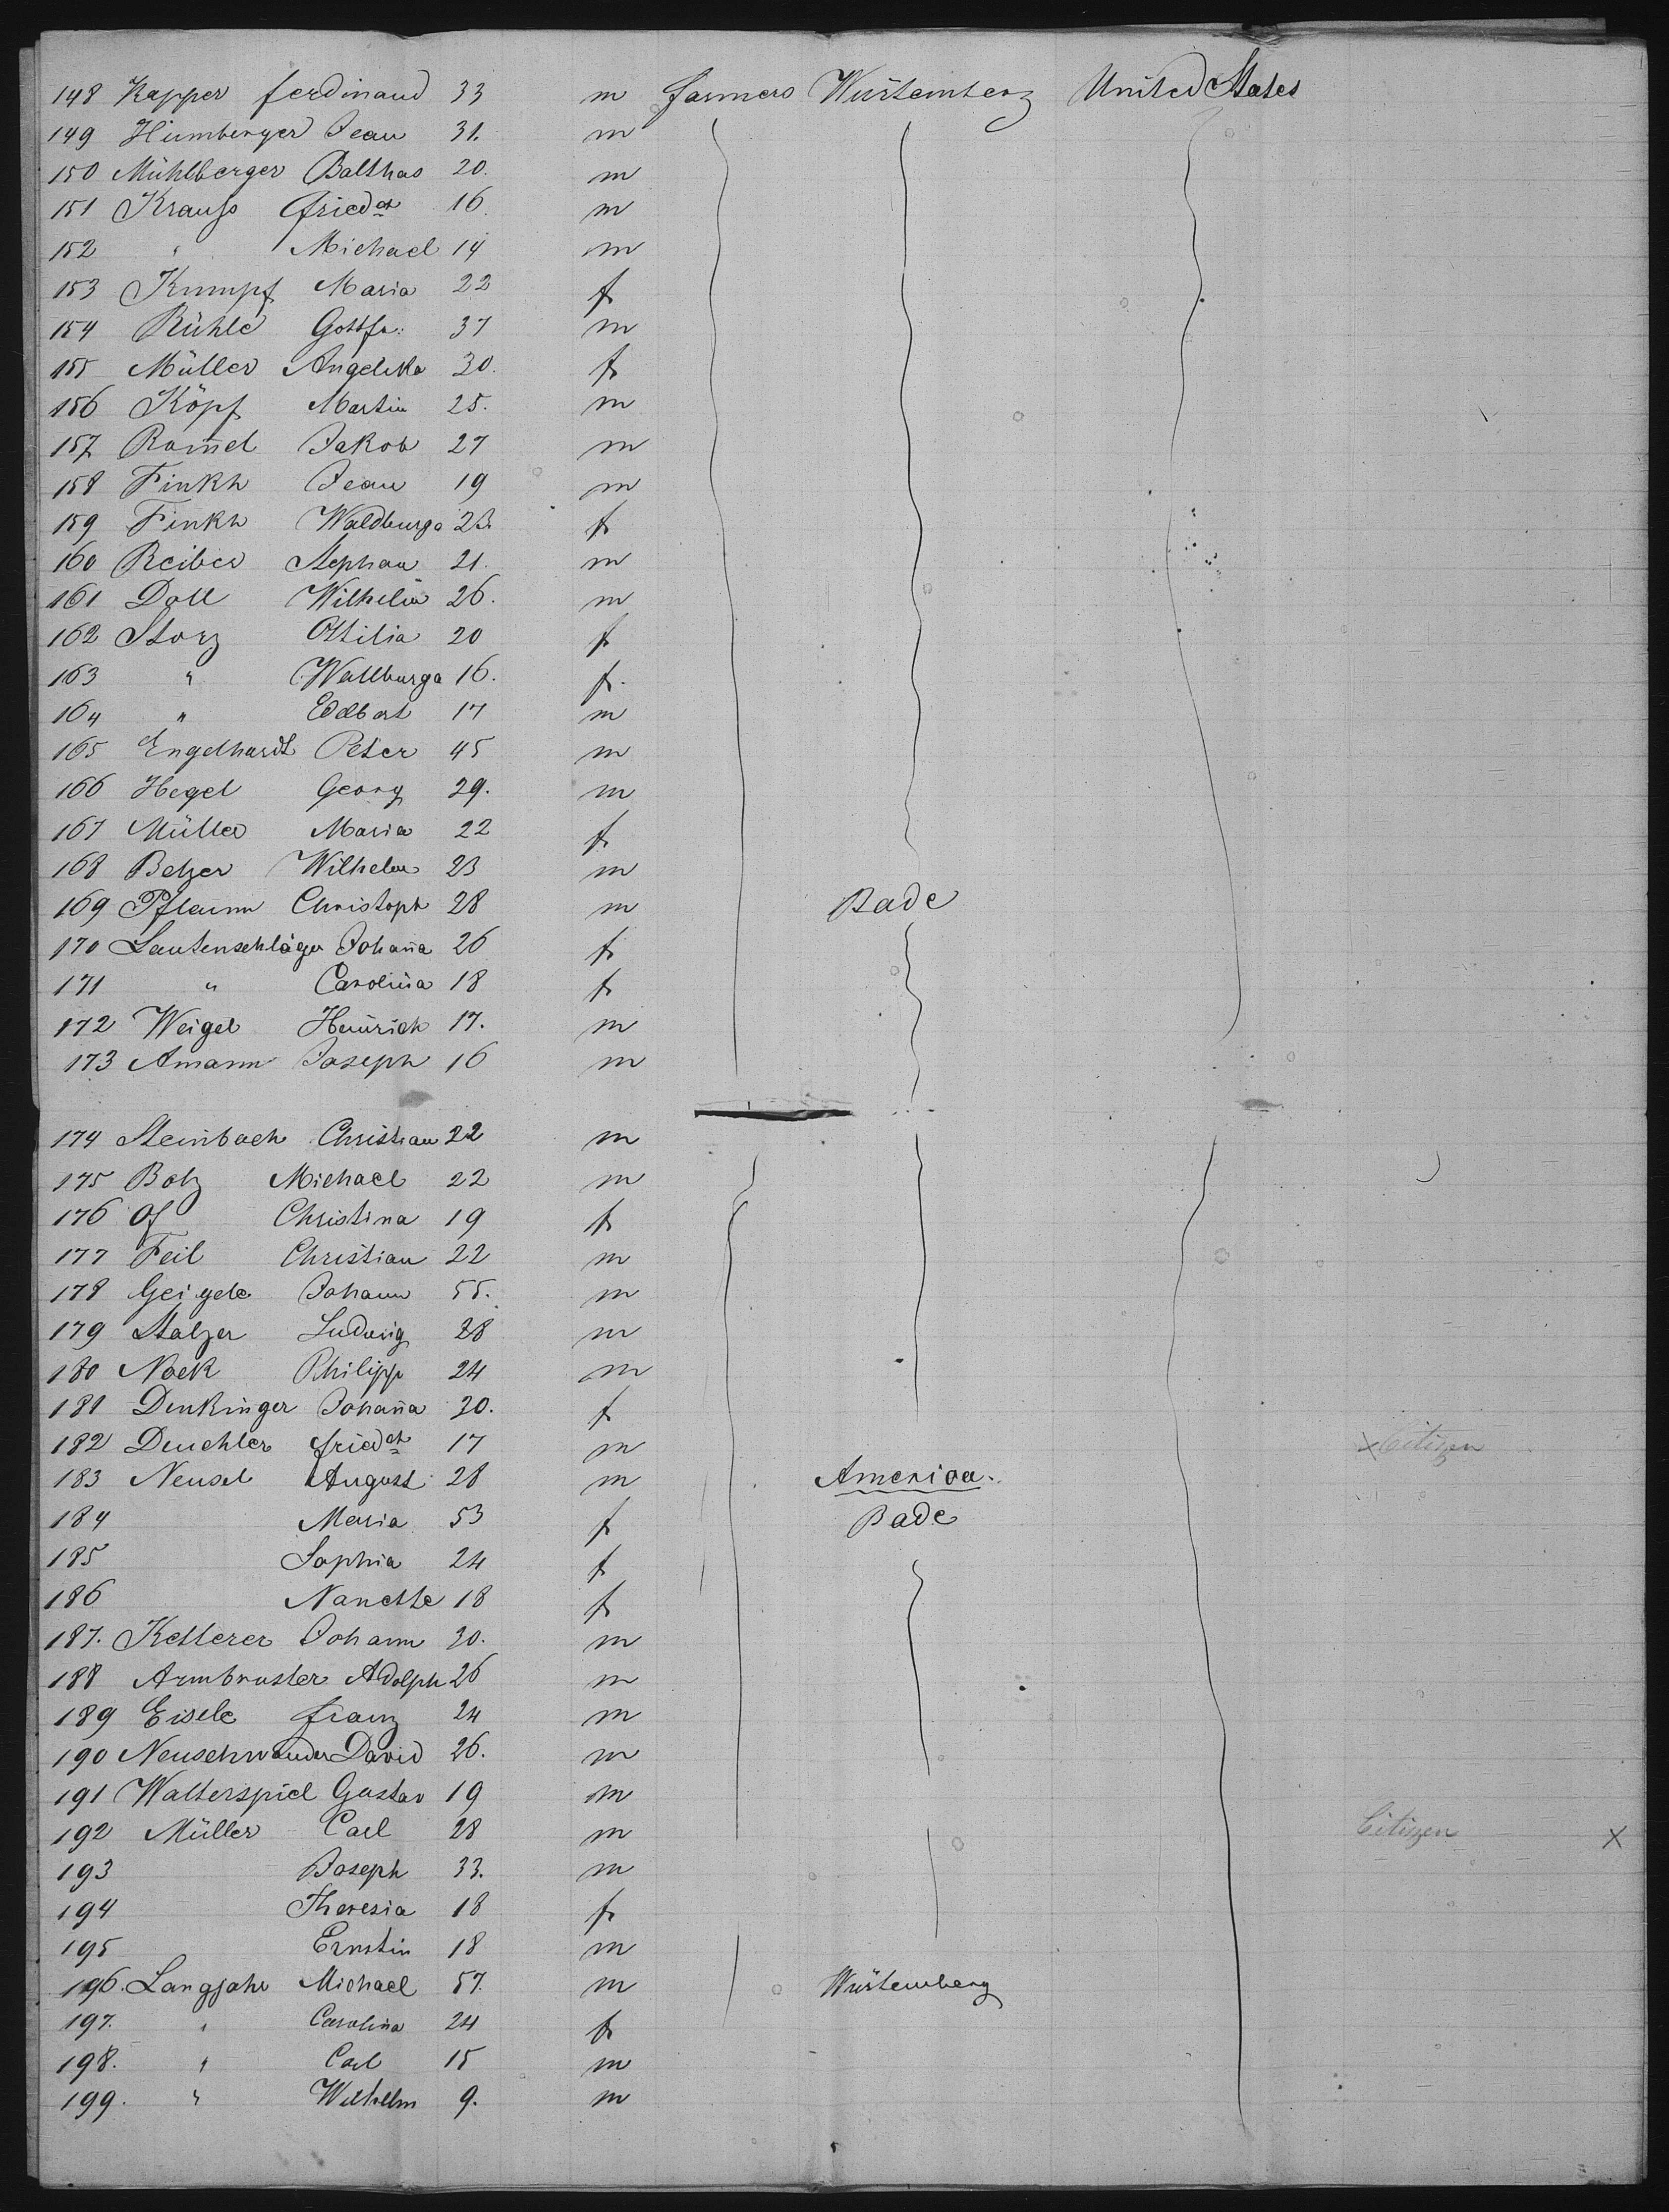 148 Kapper ferdinand 33 m farmers Würtemberg United States
149 Humberger Jean 31. m
150 Mühlberger Balthas 20. m
151 Krauss friedch 16. m
152 " Michael 14 m
153 Kumpf Maria 22 f
154 Rühle Gottfr: 37 m
155 Müller Angelika 30. f
156 Köpf Martin 25. m
157 Rom̄el Jakob 27 m
158 Finkh Jean 19 m
159 Finkh Waldburga f
160 Reiber Stephan 21. m
161 Doll Wilhelm 26. m
162 Storz Ottilia 20 f
163 " Wallburga 16. f.
164 " Edelbert 17 m
165 Engelhardt Peter 45 m
166 Hegel Georg 29. m
167 Müller Maria 22 f
168 Belzer Wilhelm 23 m
169 Pflaum Christoph 28 m Bade
170 Lautenschläger Johan̄a 26 f
171 " Carolina 18 f
172 Weigel Heinrich 17. m
173 Amann Joseph 16 m
174 Steinbach Christian 22 m
175 Bolz Michael 22 m
176 Of Christina 19 f
177 Feil Christian 22 m
178 Geigele Johann 55. m
179 Stalzer Ludwig 28 m
180 Nock Philipp 24 m
181 Denkinger Johan̄a 30. f
182 Deuchler friedch 17 m x Citizen
183 Neusel August 28 m America.
184 Maria 53 f Bade
185 Sophia 24 f
186 Nanette 18 f
187. Ketterer Johann 30. m
188 Armbruster Adolph 26 m
189 Eisele franz 24 m
190 Neuschwander David 26. m
191 Walterspiel Gustav 19 m
192 Müller Carl 28 m Citizen X
193 Joseph 33. m
194 Theresia 18 f
195 Ernstin 18 m
196. Langjahr Michael 57. m Würtemberg
197. " Carolina 24 f
198. " Carl 15 m
199. " Wilhelm 9. m